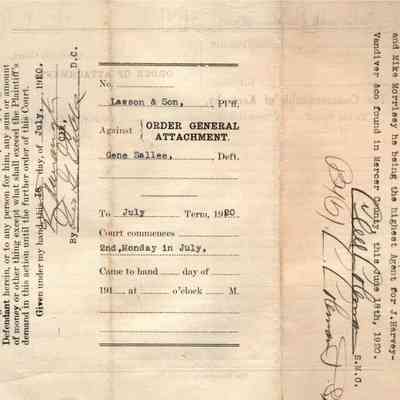 Defendant herein, or to any person for him, any sum or amount
of money or other thing except what shall exceed the Plaintiff's
demand in this action until the further order of this Court.
Given under my hand, this day, of July, 1920.
By D.C.
No.
Lawson & Son, Pl'ff.
Against ORDER GENERAL
ATTACHMENT.
Gene Sallee, Deft.
To July Term, 1920
Court commences
2nd, Monday in July,
Came to hand day of
191 at o'clock M.
and Mike Morrissy he being the highest Agent for J.Harvey-
Vandiver &oo found in Mercer County, this June 18th, 1920.
S.M.C.